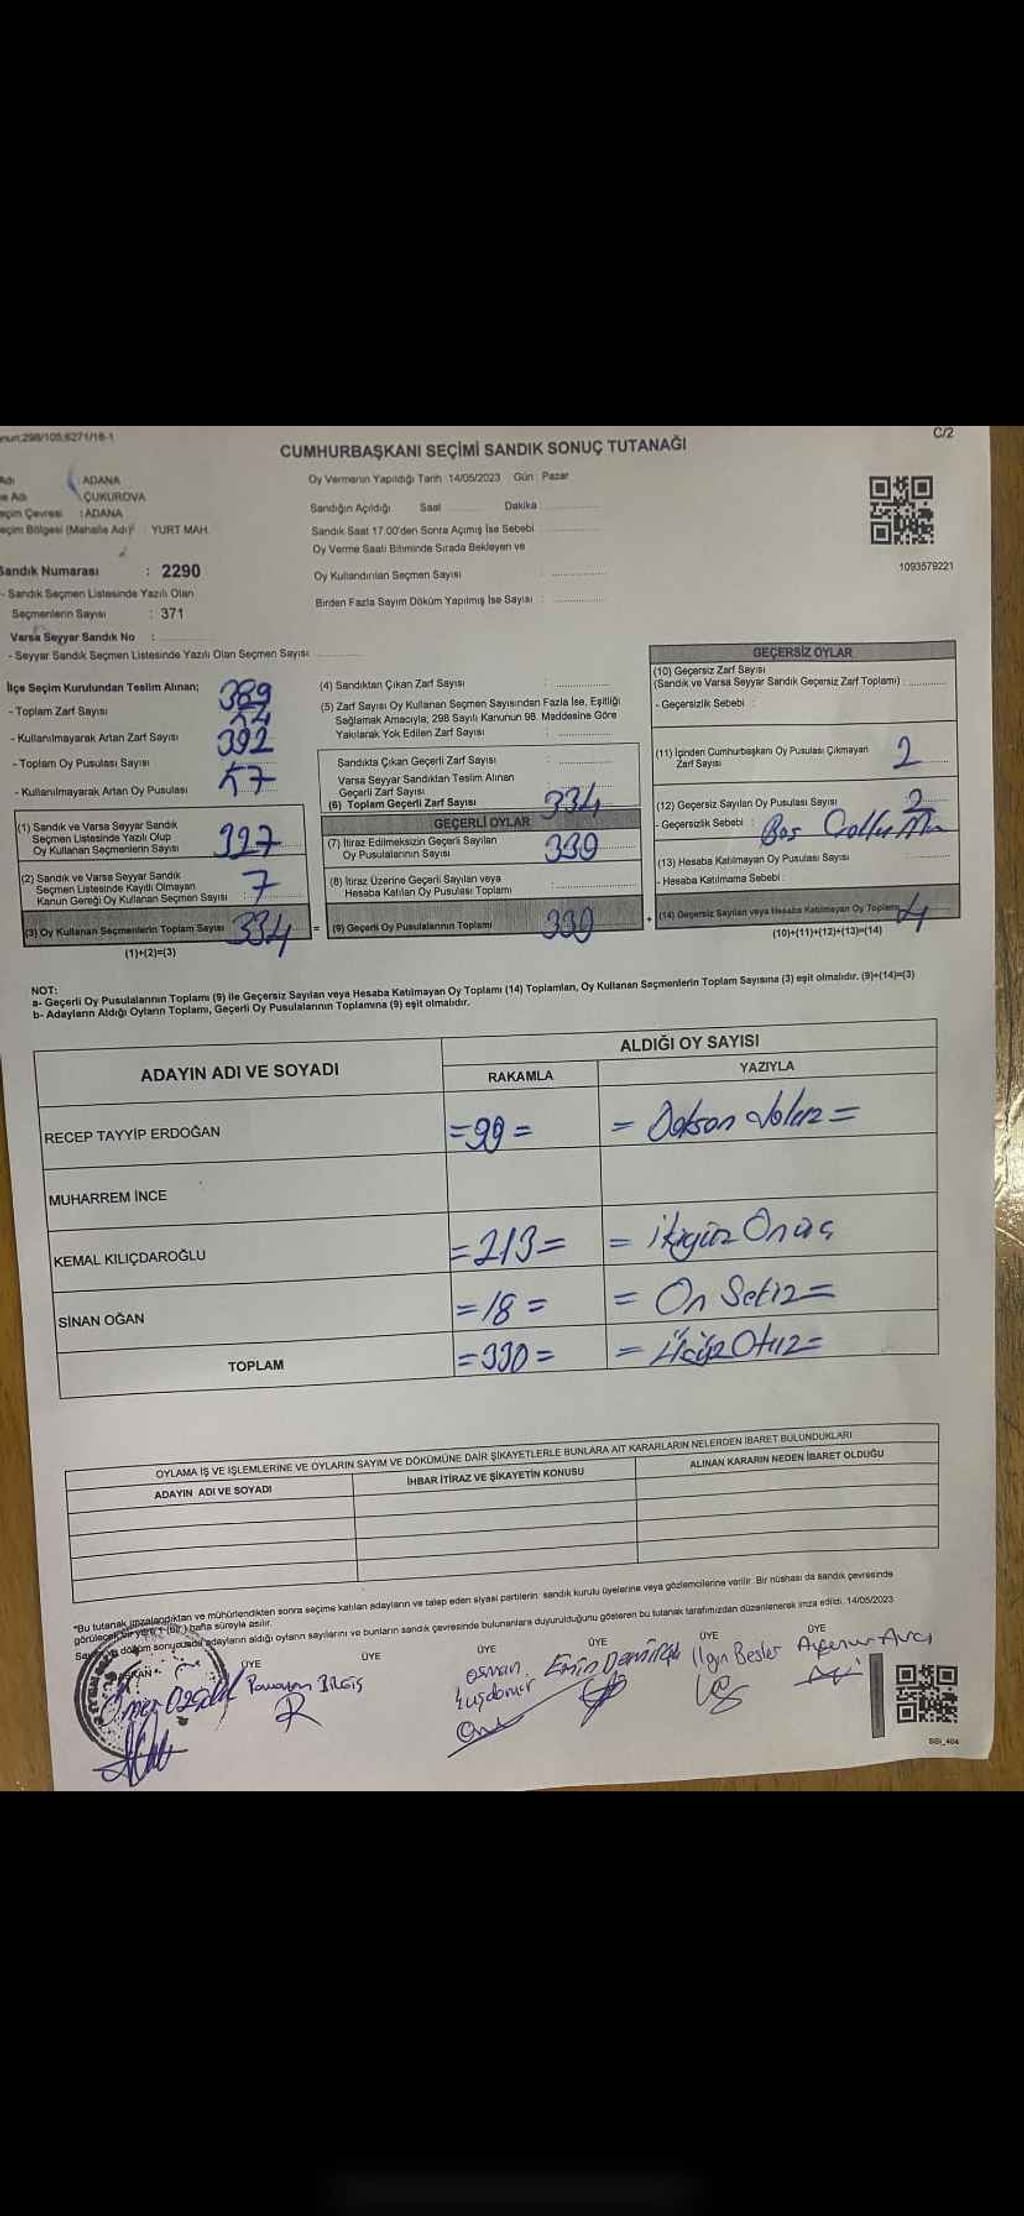 C/2
CUMHURBAŞKANI SEÇİMİ SANDIK SONUÇ TUTANAĞI
: ADANA
: ÇUKUROVA
: ADANA
YURT MAH.
Oy Vermenin Yapıldığı Tarih :14/05/2023 Gün : Pazar
Sandığın Açıldığı Saat Dakika
Sandık Saat 17.00'den Sonra Açımış İse Sebebi
Oy Verme Saati Bitiminde Sırada Bekleyen ve
Oy Kullandırılan Seçmen Sayısı :
Birden Fazla Sayım Döküm Yapılmış İse Sayısı :
1093579221
Sandık Numarası : 2290
- Sandık Seçmen Listesinde Yazılı Olan
Seçmenlerin Sayısı : 371
Varsa Seyyar Sandık No :
- Seyyar Sandık Seçmen Listesinde Yazılı Olan Seçmen Sayısı
İlçe Seçim Kurulundan Teslim Alınan;
- Toplam Zarf Sayısı 389
- Kullanılmayarak Artan Zarf Sayısı
- Toplam Oy Pusulası Sayısı 392
- Kullanılmayarak Artan Oy Pusulası
(1) Sandık ve Varsa Seyyar Sandık
Seçmen Listesinde Yazılı Olup
Oy Kullanan Seçmenlerin Sayısı 327
(2) Sandık ve Varsa Seyyar Sandık
Seçmen Listesinde Kayıtlı Olmayan
Kanun Gereği Oy Kullanan Seçmen Sayısı : 7
(3) Oy Kullanan Seçmenlerin Toplam Sayısı 334
(1)+(2)=(3)
(4) Sandıktan Çıkan Zarf Sayısı :
(5) Zarf Sayısı Oy Kullanan Seçmen Sayısından Fazla İse, Eşitliği
Sağlamak Amacıyla, 298 Sayılı Kanunun 98. Maddesine Göre
Yakılarak Yok Edilen Zarf Sayısı :
Sandıkta Çıkan Geçerli Zarf Sayısı :
Varsa Seyyar Sandıktan Teslim Alınan
Geçerli Zarf Sayısı
(6) Toplam Geçerli Zarf Sayısı 334
GEÇERLİ OYLAR
(7) İtiraz Edilmeksizin Geçerli Sayılan
Oy Pusulalarının Sayısı 330
(8) İtiraz Üzerine Geçerli Sayılan veya
Hesaba Katılan Oy Pusulası Toplamı :
= (9) Geçerli Oy Pusulalarının Toplamı 330
GEÇERSİZ OYLAR
(10) Geçersiz Zarf Sayısı
(Sandık ve Varsa Seyyar Sandık Geçersiz Zarf Toplamı) :
- Geçersizlik Sebebi :
(11) İçinden Cumhurbaşkanı Oy Pusulası Çıkmayan
Zarf Sayısı 2
(12) Geçersiz Sayılan Oy Pusulası Sayısı 2
- Geçersizlik Sebebi : Boş
(13) Hesaba Katılmayan Oy Pusulası Sayısı :
- Hesaba Katılmama Sebebi :
+ (14) Geçersiz Sayılan veya Hesaba Katılmayan Oy Toplamı 4
(10)+(11)+(12)+(13)=(14)
NOT:
a- Geçerli Oy Pusulalarının Toplamı (9) ile Geçersiz Sayılan veya Hesaba Katılmayan Oy Toplamı (14) Toplamları, Oy Kullanan Seçmenlerin Toplam Sayısına (3) eşit olmalıdır. (9)+(14)=(3)
b- Adayların Aldığı Oyların Toplamı, Geçerli Oy Pusulalarının Toplamına (9) eşit olmalıdır.
ADAYIN ADI VE SOYADI
ALDIĞI OY SAYISI
RAKAMLA YAZIYLA
RECEP TAYYİP ERDOĞAN =99= = Doksan dokuz =
MUHARREM İNCE
KEMAL KILIÇDAROĞLU =213= = ikiyüz Onüç
SİNAN OĞAN =18= = On Sekiz =
TOPLAM =330= = Üçyüz Otuz =
OYLAMA İŞ VE İŞLEMLERİNE VE OYLARIN SAYIM VE DÖKÜMÜNE DAİR ŞİKAYETLERLE BUNLARA AİT KARARLARIN NELERDEN İBARET BULUNDUKLARI
ADAYIN ADI VE SOYADI İHBAR İTİRAZ VE ŞİKAYETİN KONUSU ALINAN KARARIN NEDEN İBARET OLDUĞU
*Bu tutanak imzalandıktan ve mühürlendikten sonra seçime katılan adayların ve talep eden siyasi partilerin sandık kurulu üyelerine veya gözlemcilerine verilir. Bir nüshası da sandık çevresinde
görülecek bir yere 1 (bir) hafta süreyle asılır.
döküm sonucunda adayların aldığı oyların sayılarını ve bunların sandık çevresinde bulunanlara duyurulduğunu gösteren bu tutanak tarafımızdan düzenlenerek imza edildi. 14/05/2023
BAŞKAN ÜYE ÜYE ÜYE ÜYE ÜYE ÜYE
Ömer
Ramazan BİLGİŞ
Osman Kuşdemir
Emin Demirtaş
Ilgın Besler
Ayşenur Avcı